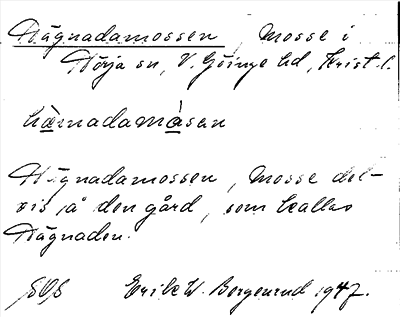 Hägnadamossen, Mosse i
Nörja sn, V. Göinge hd, Krist. l.
hä̱nnadamå̱san
Hägnadamossen, mosse del-
vis på den gård, som kallas
Hägnaden.
SOS Erik W. Borgenrud 1947.